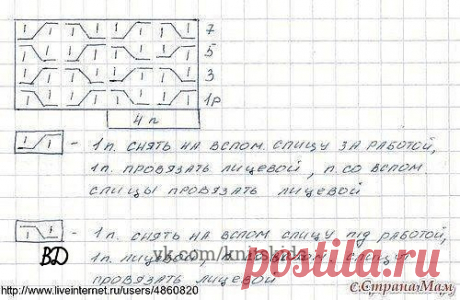 7
5
3
1р
4 п
- 1п. снять на вспом. спицу за работой,
1п. провязать лицевой, п. со вспом
спицы провязать лицевой
- 1п. снять на вспом спицу під работой,
1п. лицевой, п. со вспом. спицы
ВД
провязать лицевой
vk.com/
postila.ru
©СтранаМам
http://www.liveinternet.ru/users/4860820